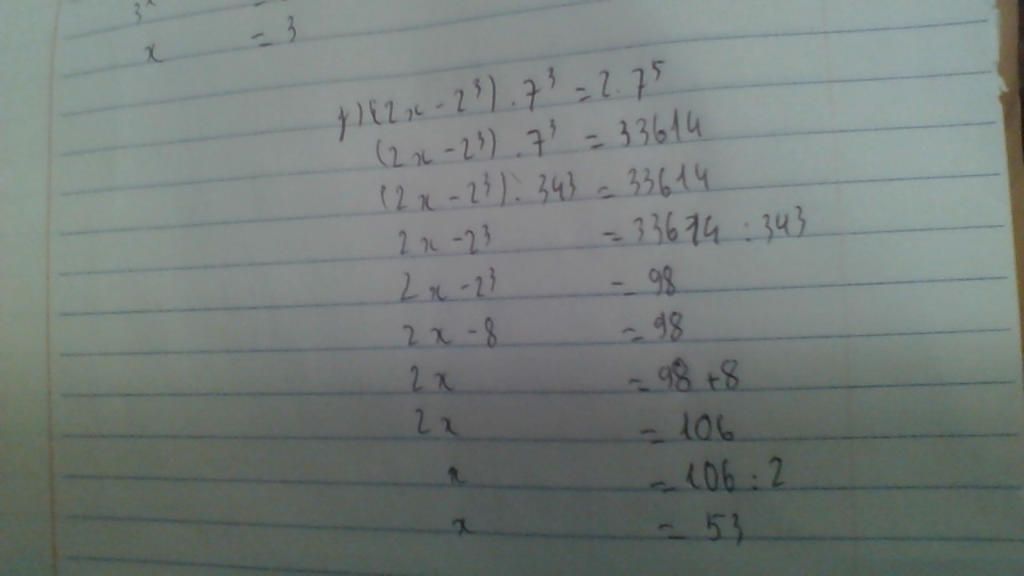 x = 3
f) (2x - 2³) . 7³ = 2. 7⁵
(2x - 2³) . 7³ = 33614
(2x - 2³) . 343 = 33614
2x - 2³ = 33614 : 343
2x - 2³ = 98
2x - 8 = 98
2x = 98 + 8
2x = 106
x = 106 : 2
x = 53